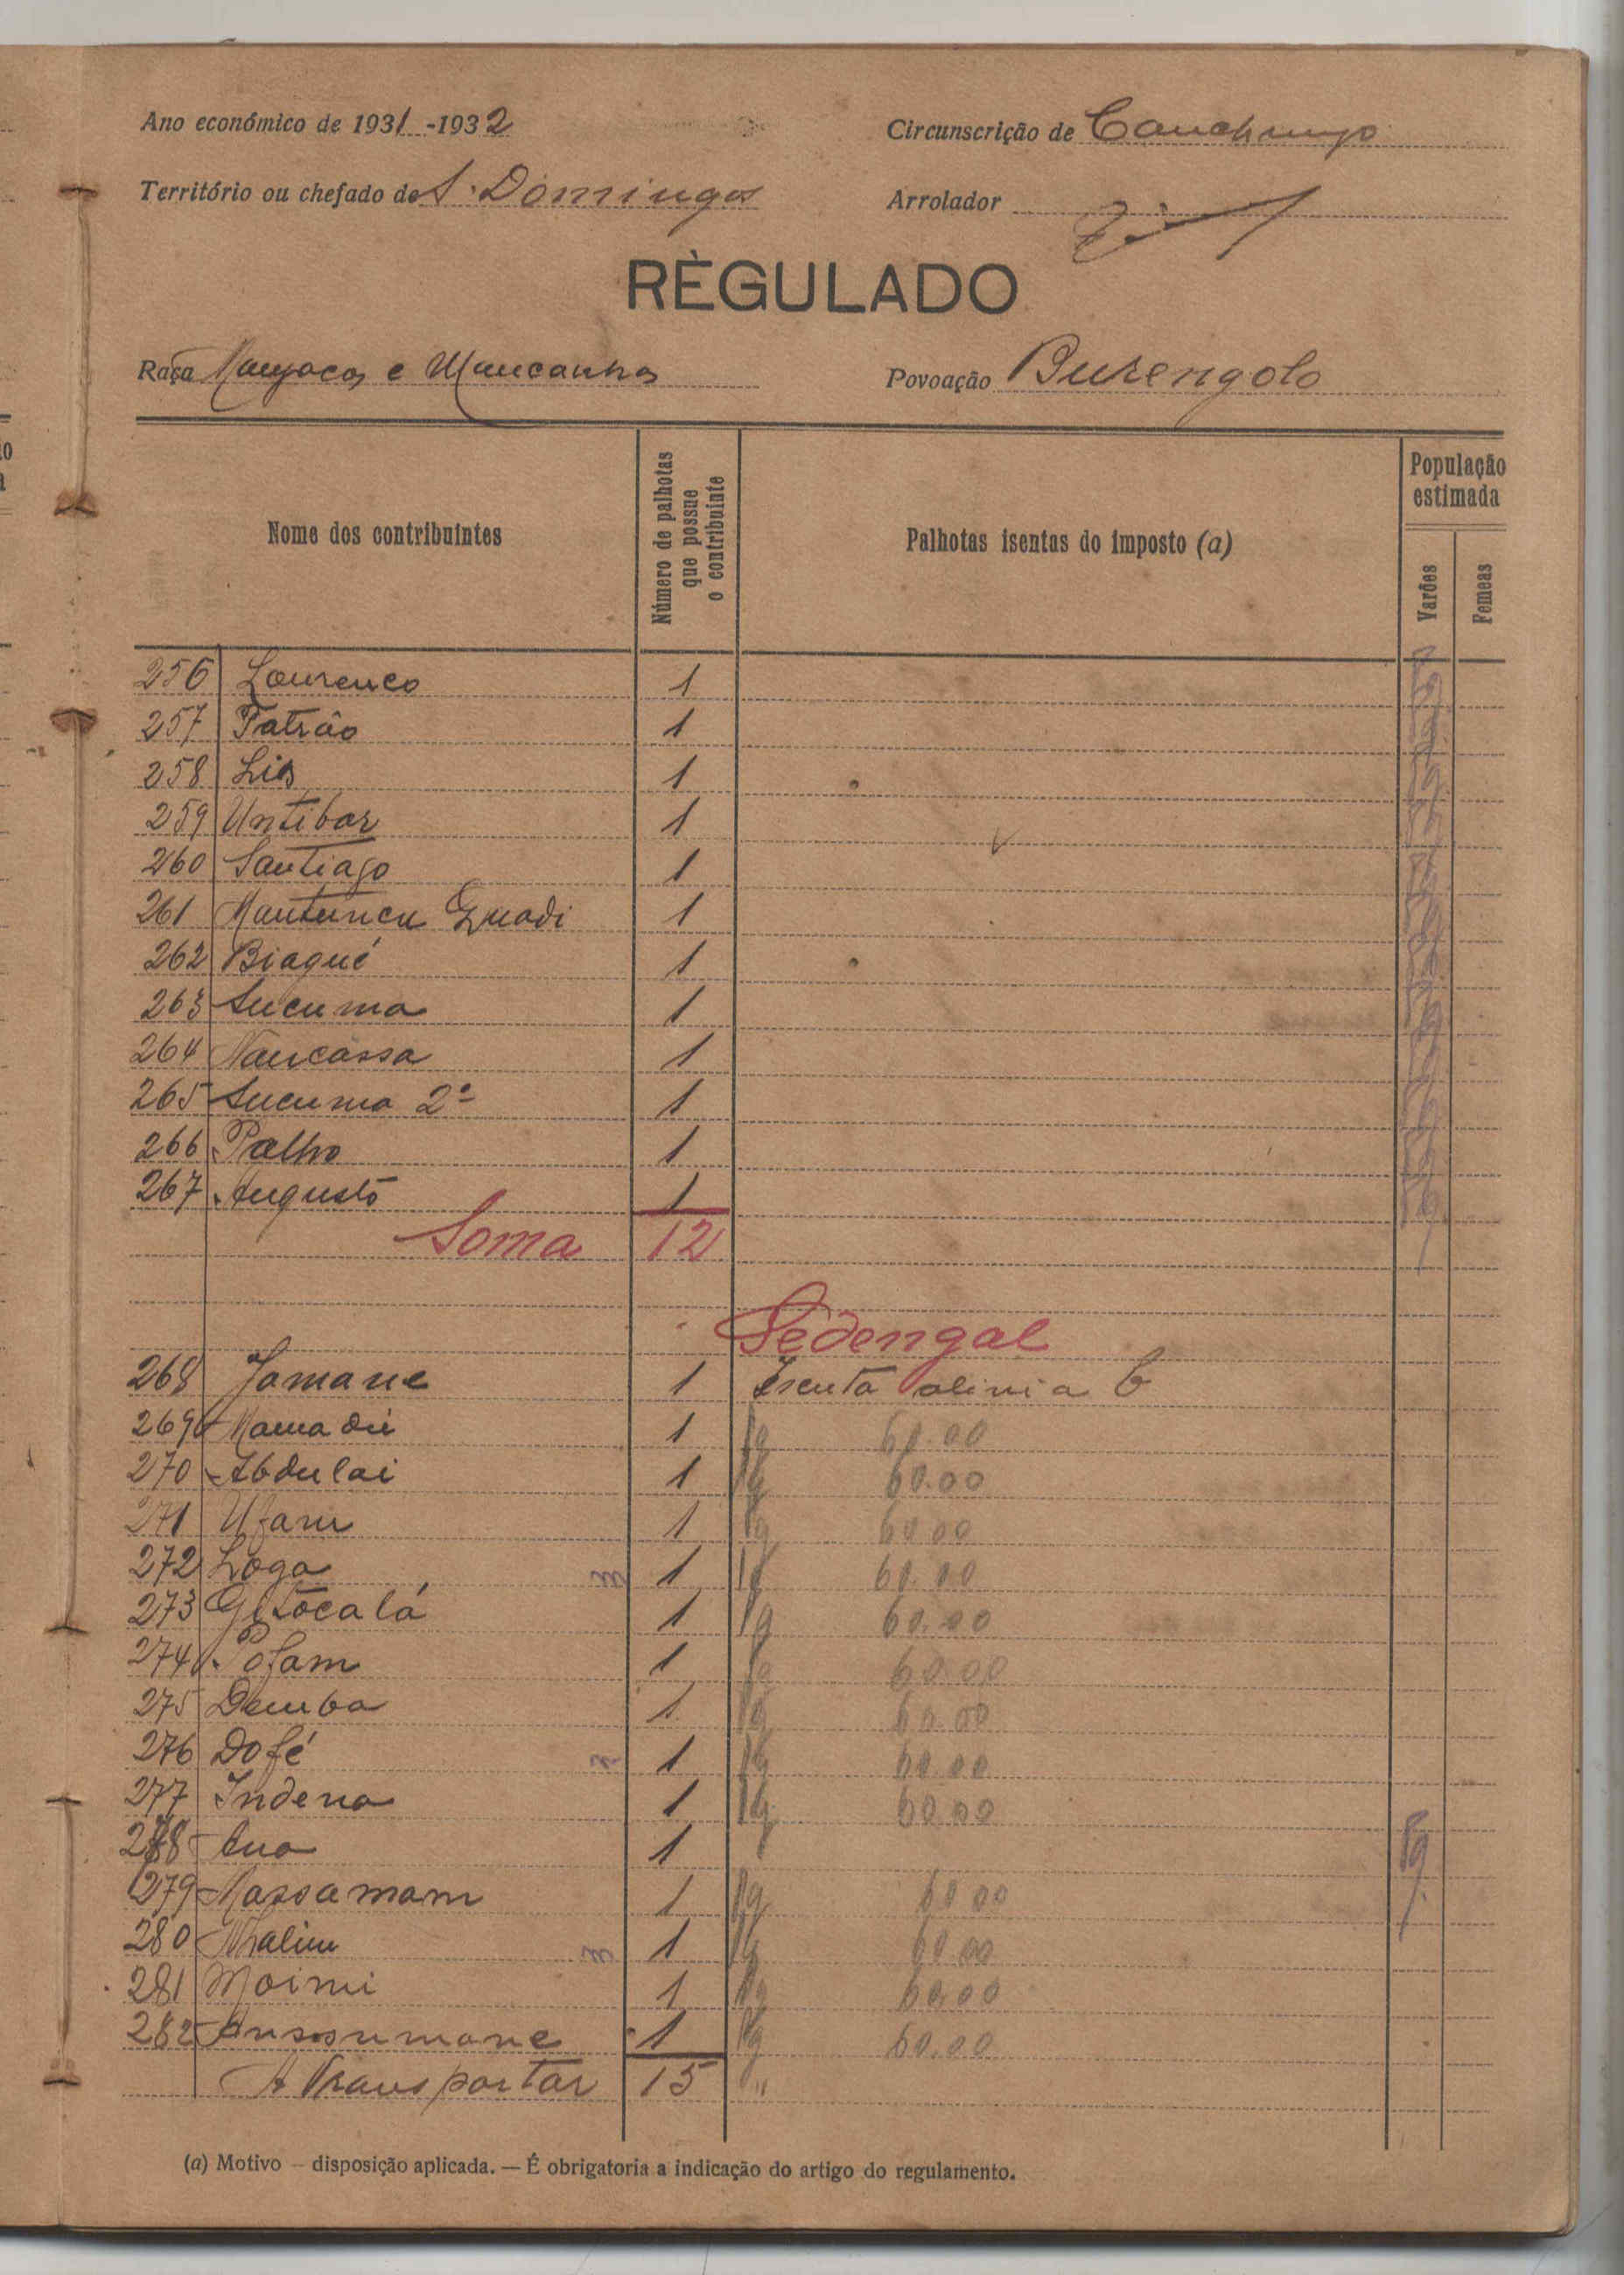 Ano económico de 1931-1932
Circunscrição de Canchungo
Território ou chefado de S. Domingos
Arrolador
RÈGULADO
Raça Manjacos e Mancanhas
Povoação Burengolo
Nome dos contribuintes
Número de palhotas que possue o contribuinte
Palhotas isentas do imposto (a)
População estimada
Varões
Femeas
256 Lourenco 1
257 Patrão 1
258 1
259 Untibar 1
260 Santiago 1
261 1
262 Biagué 1
263 Sucuma 1
264 Nancassa 1
265 Sucuma 2º 1
266 Palho 1
267 Augusto 1
Soma 12
Sedengal
268 Jomane 1 Isenta alinia b
269 Mamadú 1 Pg 60.00
270 Abdulai 1 Pg 60.00
271 1 Pg 60.00
272 Loga 3 1 Pg 60.00
273 1 Pg 60.00
274 Pofam 1 Pg 60.00
275 Demba 1 Pg 60.00
276 Dofé 1 Pg 60.00
277 Indena 1 Pg 60.00
278 1 Pg
279 Massamam 1 Pg 60.00
280 3 1 Pg 60.00
281 1 Pg 60.00
282 Anssumane 1 Pg 60.00
A Transportar 15 "
(a) Motivo – disposição aplicada. — É obrigatoria a indicação do artigo do regulamento.